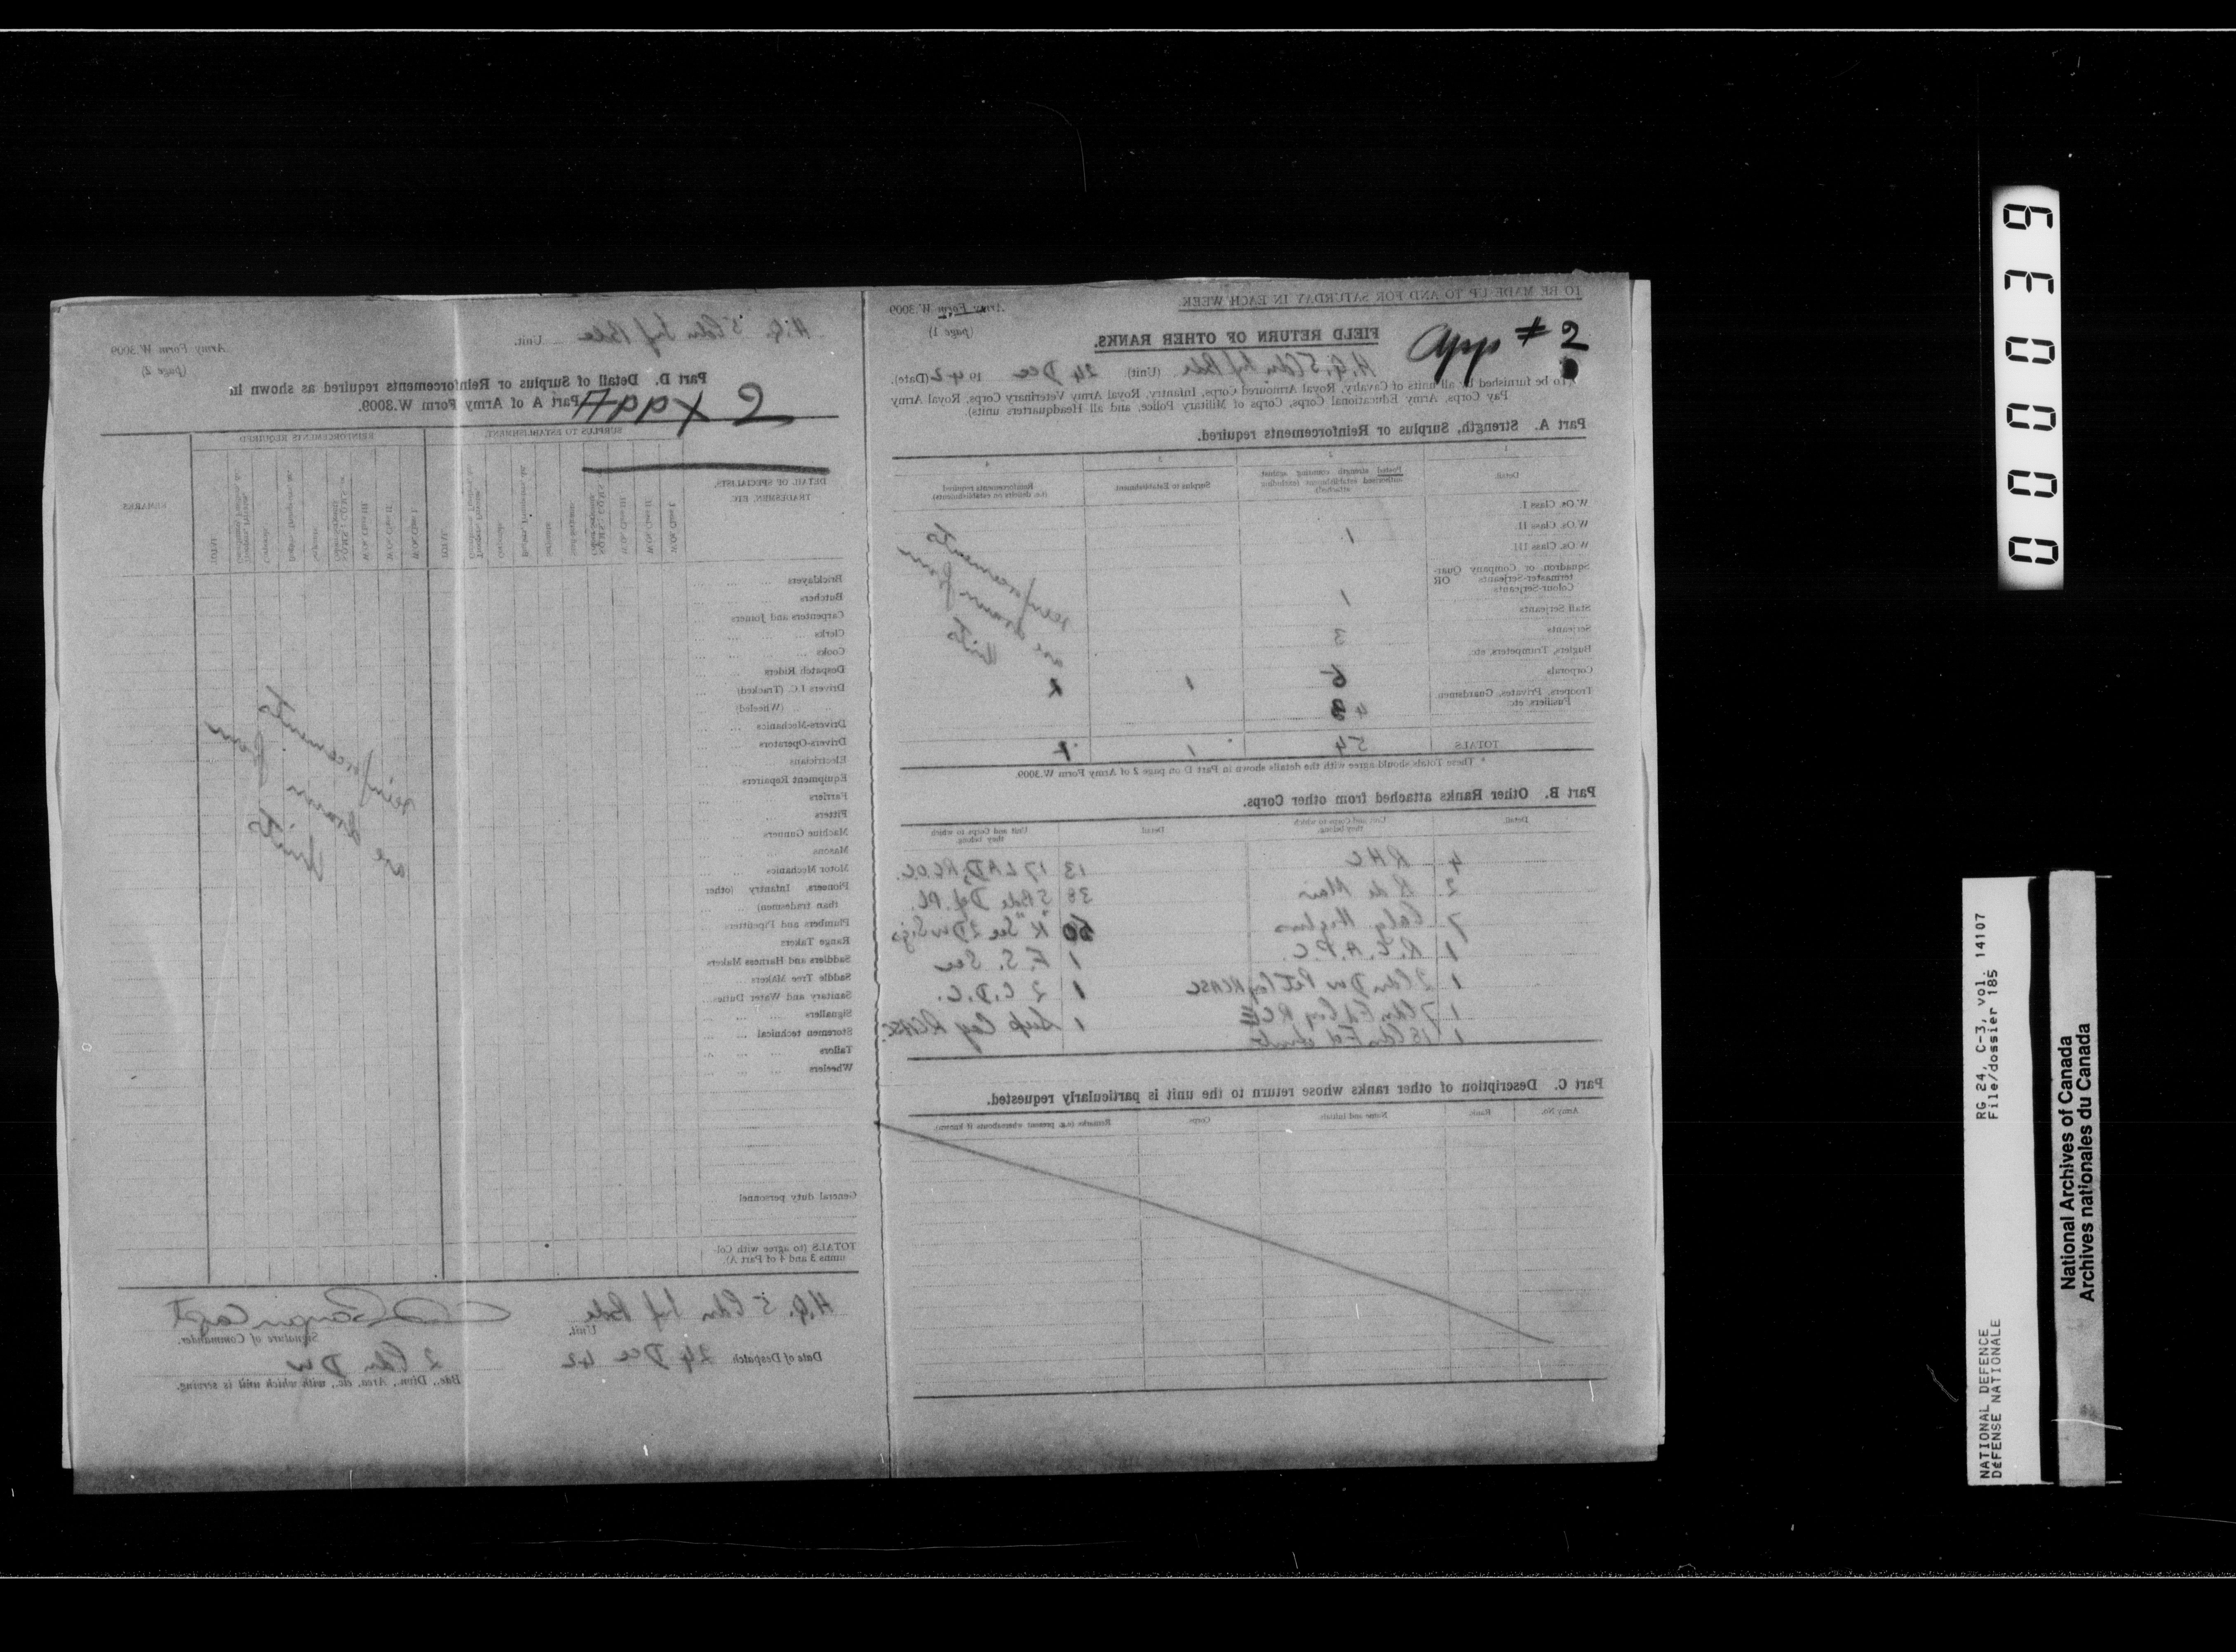 TO BE MADE UP TO AND FOR SATURDAY IN EACH WEEK.
Army Form W.3009
(page 1)
App # 2
FIELD RETURN OF OTHER RANKS.
H.Q. 5 Cdn Inf Bde (Unit) 24 Dec 1942 (Date).
To be furnished by all units of Cavalry, Royal Armoured Corps, Infantry, Royal Army Veterinary Corps, Royal Army
Pay Corps, Army Educational Corps, Corps of Military Police, and all Headquarters units).
Part A. Strength, Surplus or Reinforcements required.
1 2 3 4
Detail
Posted strength counting against authorised establishment (excluding attached)
Surplus to Establishment
Reinforcements required (i.e. deficits on establishments)
W.Os. Class I.
W.Os. Class II. 1
W.Os. Class III
Squadron or Company Quar-
termaster-Serjeants OR
Colour-Serjeants 1
Staff Serjeants
Serjeants 3
Buglers, Trumpeters, etc.
Corporals 1
Troopers, Privates, Guardsmen,
Fusiliers, etc.
TOTALS 54 1
reinforcements
are drawn from
Units
* These Totals should agree with the details shown in Part D on page 2 of Army Form W.3009.
Part B. Other Ranks attached from other Corps.
Detail Unit and Corps to which they belong. Detail Unit and Corps to which they belong.
4 RHC 13 17 LAD, RCOC.
2 R de Mais 38 5 Bde Def. Pl.
7 Calg Highrs "K" Sec 2 Div Sigs
1 R.C.A.P.C. 1 F.S. Sec
1 2 Cdn Div Pet Coy RCASC 1 2 C.D.C.
1 7 Cdn Fd Coy RCE 1 Sup Coy RCASC.
1 18 Cdn Fd Amb
Part C. Description of other ranks whose return to the unit is particularly requested.
Army No. Rank Name and Initials Corps Remarks (e.g. present whereabouts if known)
H.Q. 5 Cdn Inf Bde Unit.
Army Form W.3009
(page 2)
Part D. Detail of Surplus or Reinforcements required as shown in
Part A of Army Form W.3009.
Appx 2
DETAIL OF SPECIALISTS, TRADESMEN, ETC.
SURPLUS TO ESTABLISHMENT.
REINFORCEMENTS REQUIRED
REMARKS
W.Os. Class I.
W.Os. Class II
W.Os. Class III
TOTAL
Bricklayers
Butchers
Carpenters and Joiners
Clerks
Cooks
Despatch Riders
Drivers I.C. (Tracked)
" " (Wheeled)
Drivers-Mechanics
Drivers-Operators
Electricians
Equipment Repairers
Farriers
Fitters
Machine Gunners
Masons
Motor Mechanics
Pioneers, Infantry (other
than tradesmen)
Plumbers and Pipefitters
Range Takers
Saddlers and Harness Makers
Saddle Tree Makers
Sanitary and Water Duties
Signallers
Storemen technical
Tailors
Wheelers
reinforcements
are drawn from
Units
General duty personnel
TOTALS (to agree with Col-
umns 3 and 4 of Part A)
H.Q. 5 Cdn Inf Bde Unit.
Capt
Signature of Commander.
Date of Despatch 24 Dec 42
2 Cdn Div
Bde., Divn., Area, etc., with which unit is serving.
0000039
RG 24, C-3, vol. 14107
File/dossier 185
NATIONAL DEFENCE
DÉFENSE NATIONALE
National Archives of Canada
Archives nationales du Canada